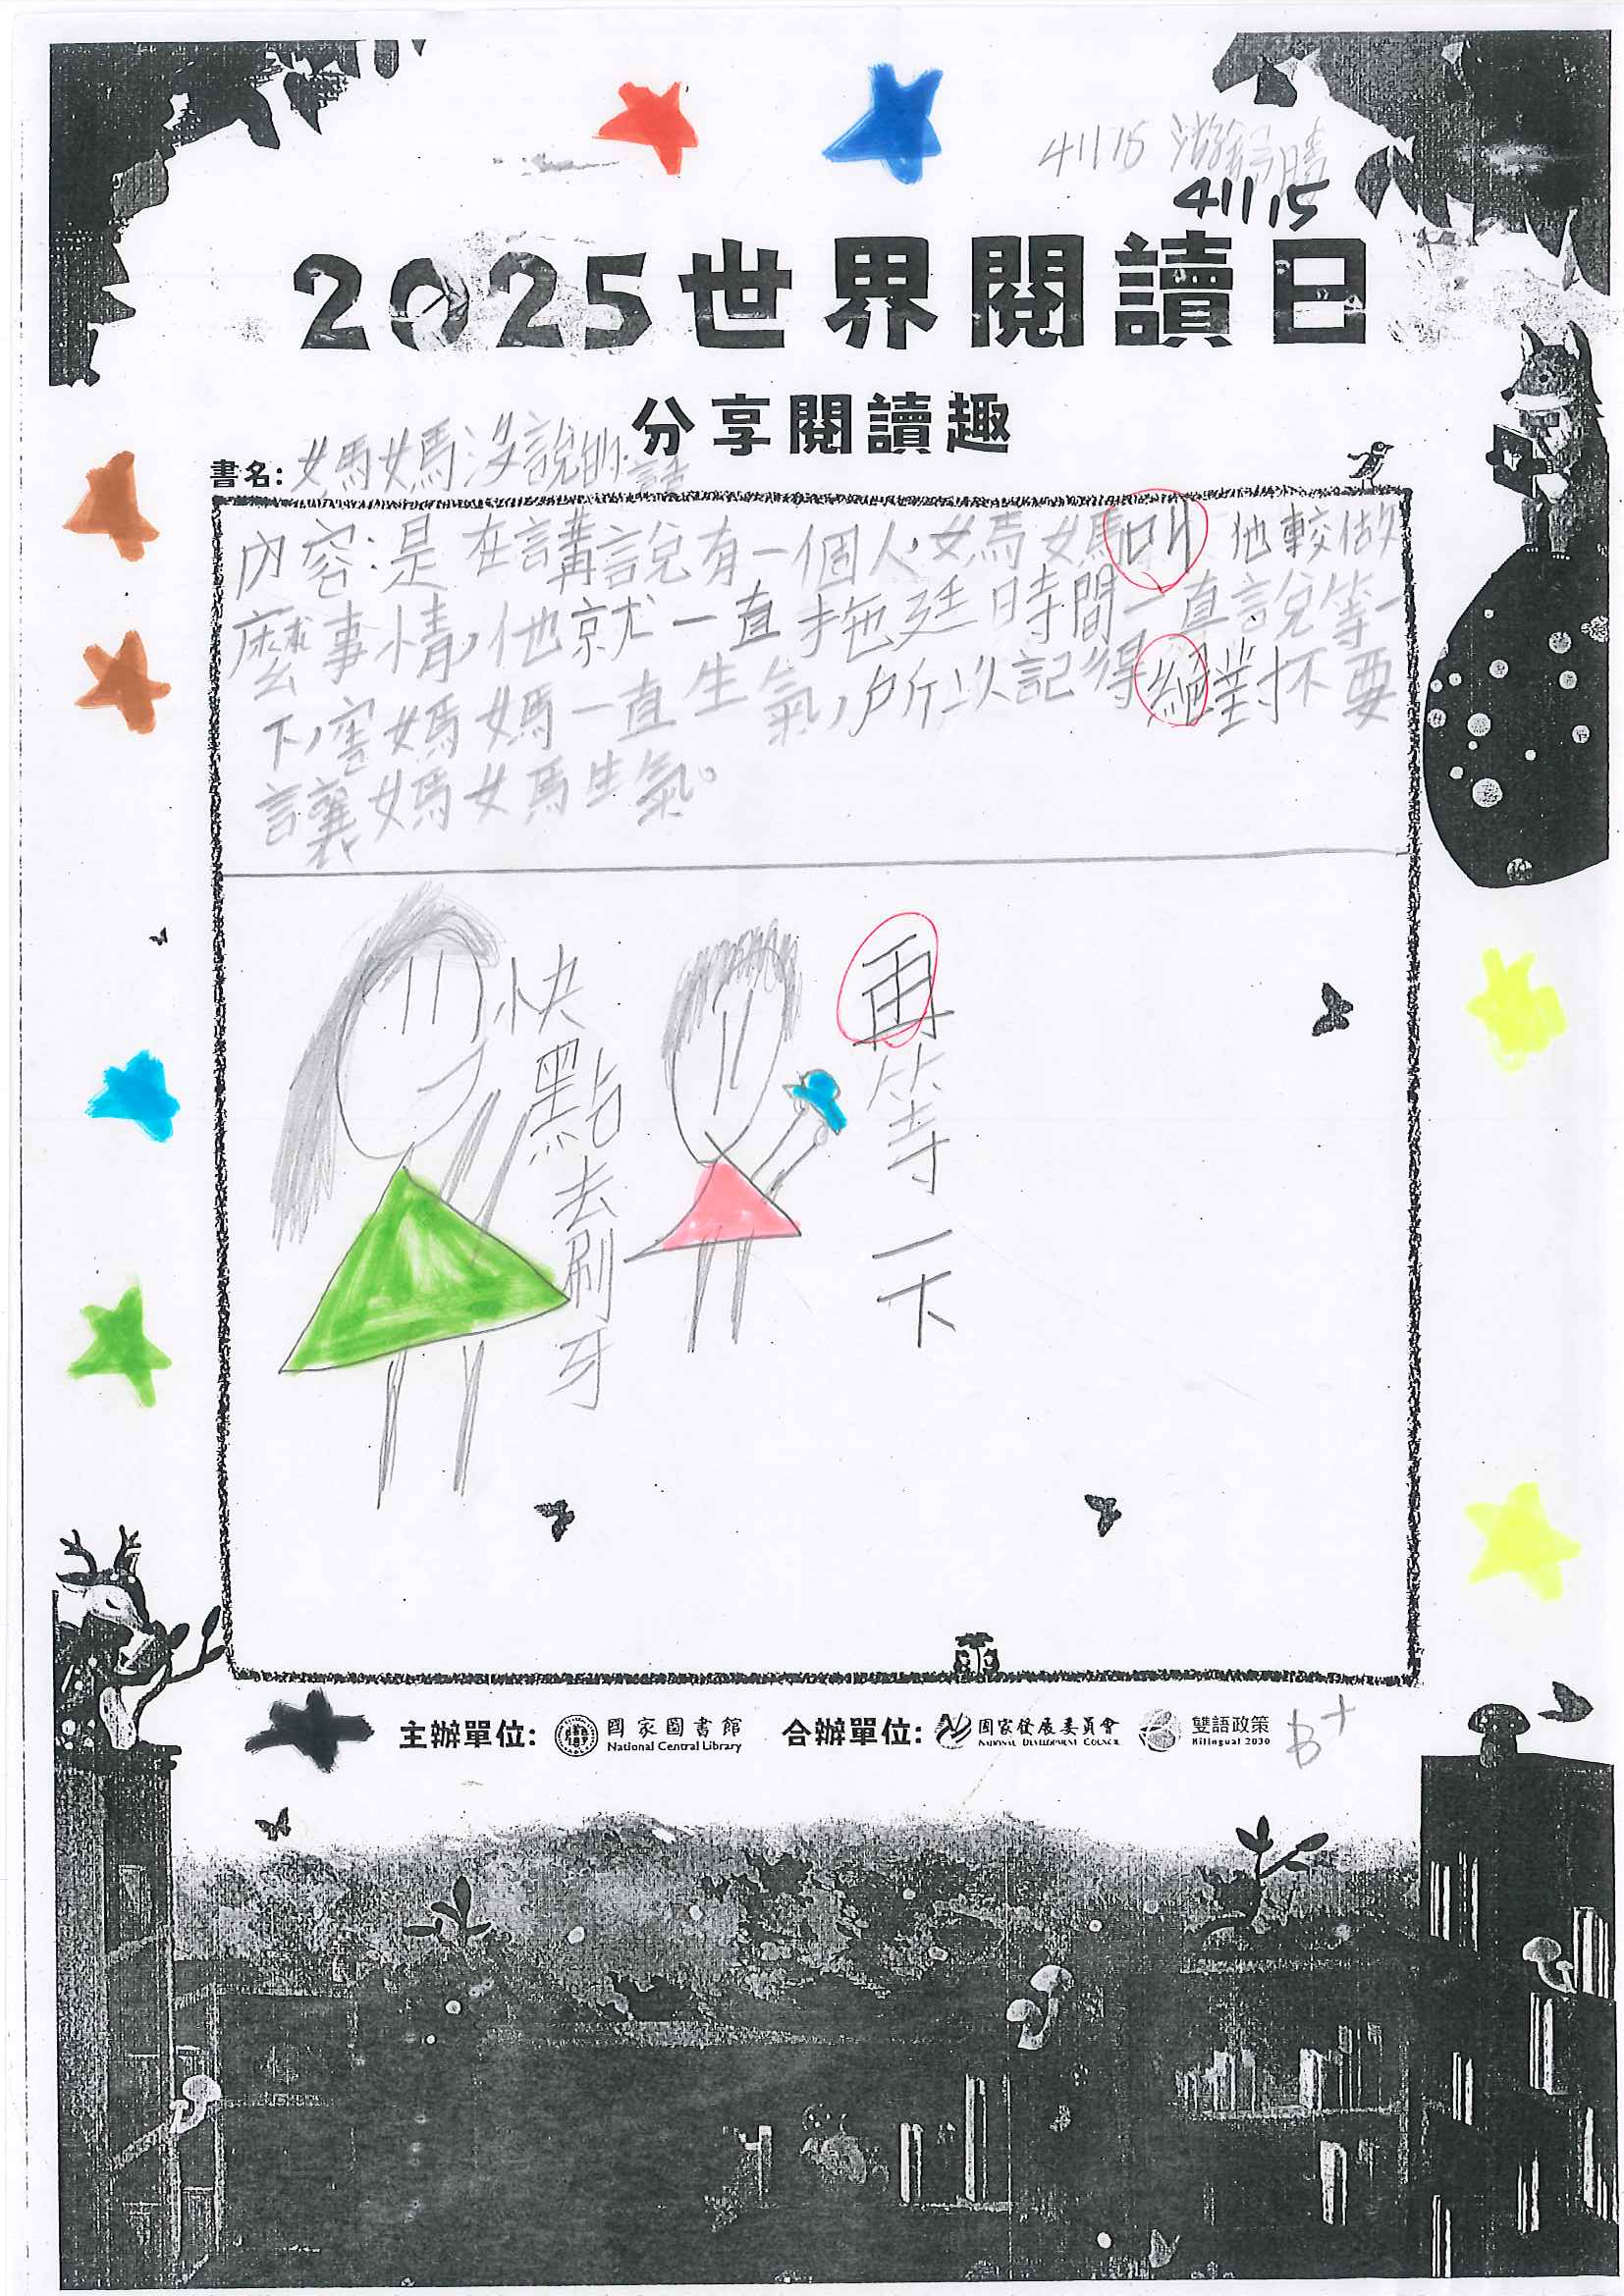 41115 游
41115
2025世界閱讀日
分享閱讀趣
書名:媽媽沒說的話
內容:是在講說有一個人,媽媽叫他較做
麼事情,他就一直拖延時間一直說等一
下,害媽媽一直生氣,所以記得絕對不要
讓媽媽生氣。
快點去刷牙
再等一下
主辦單位: 國家圖書館 National Central Library 合辦單位: 國家發展委員會 NATIONAL DEVELOPMENT COUNCIL 雙語政策 Bilingual 2030
B+